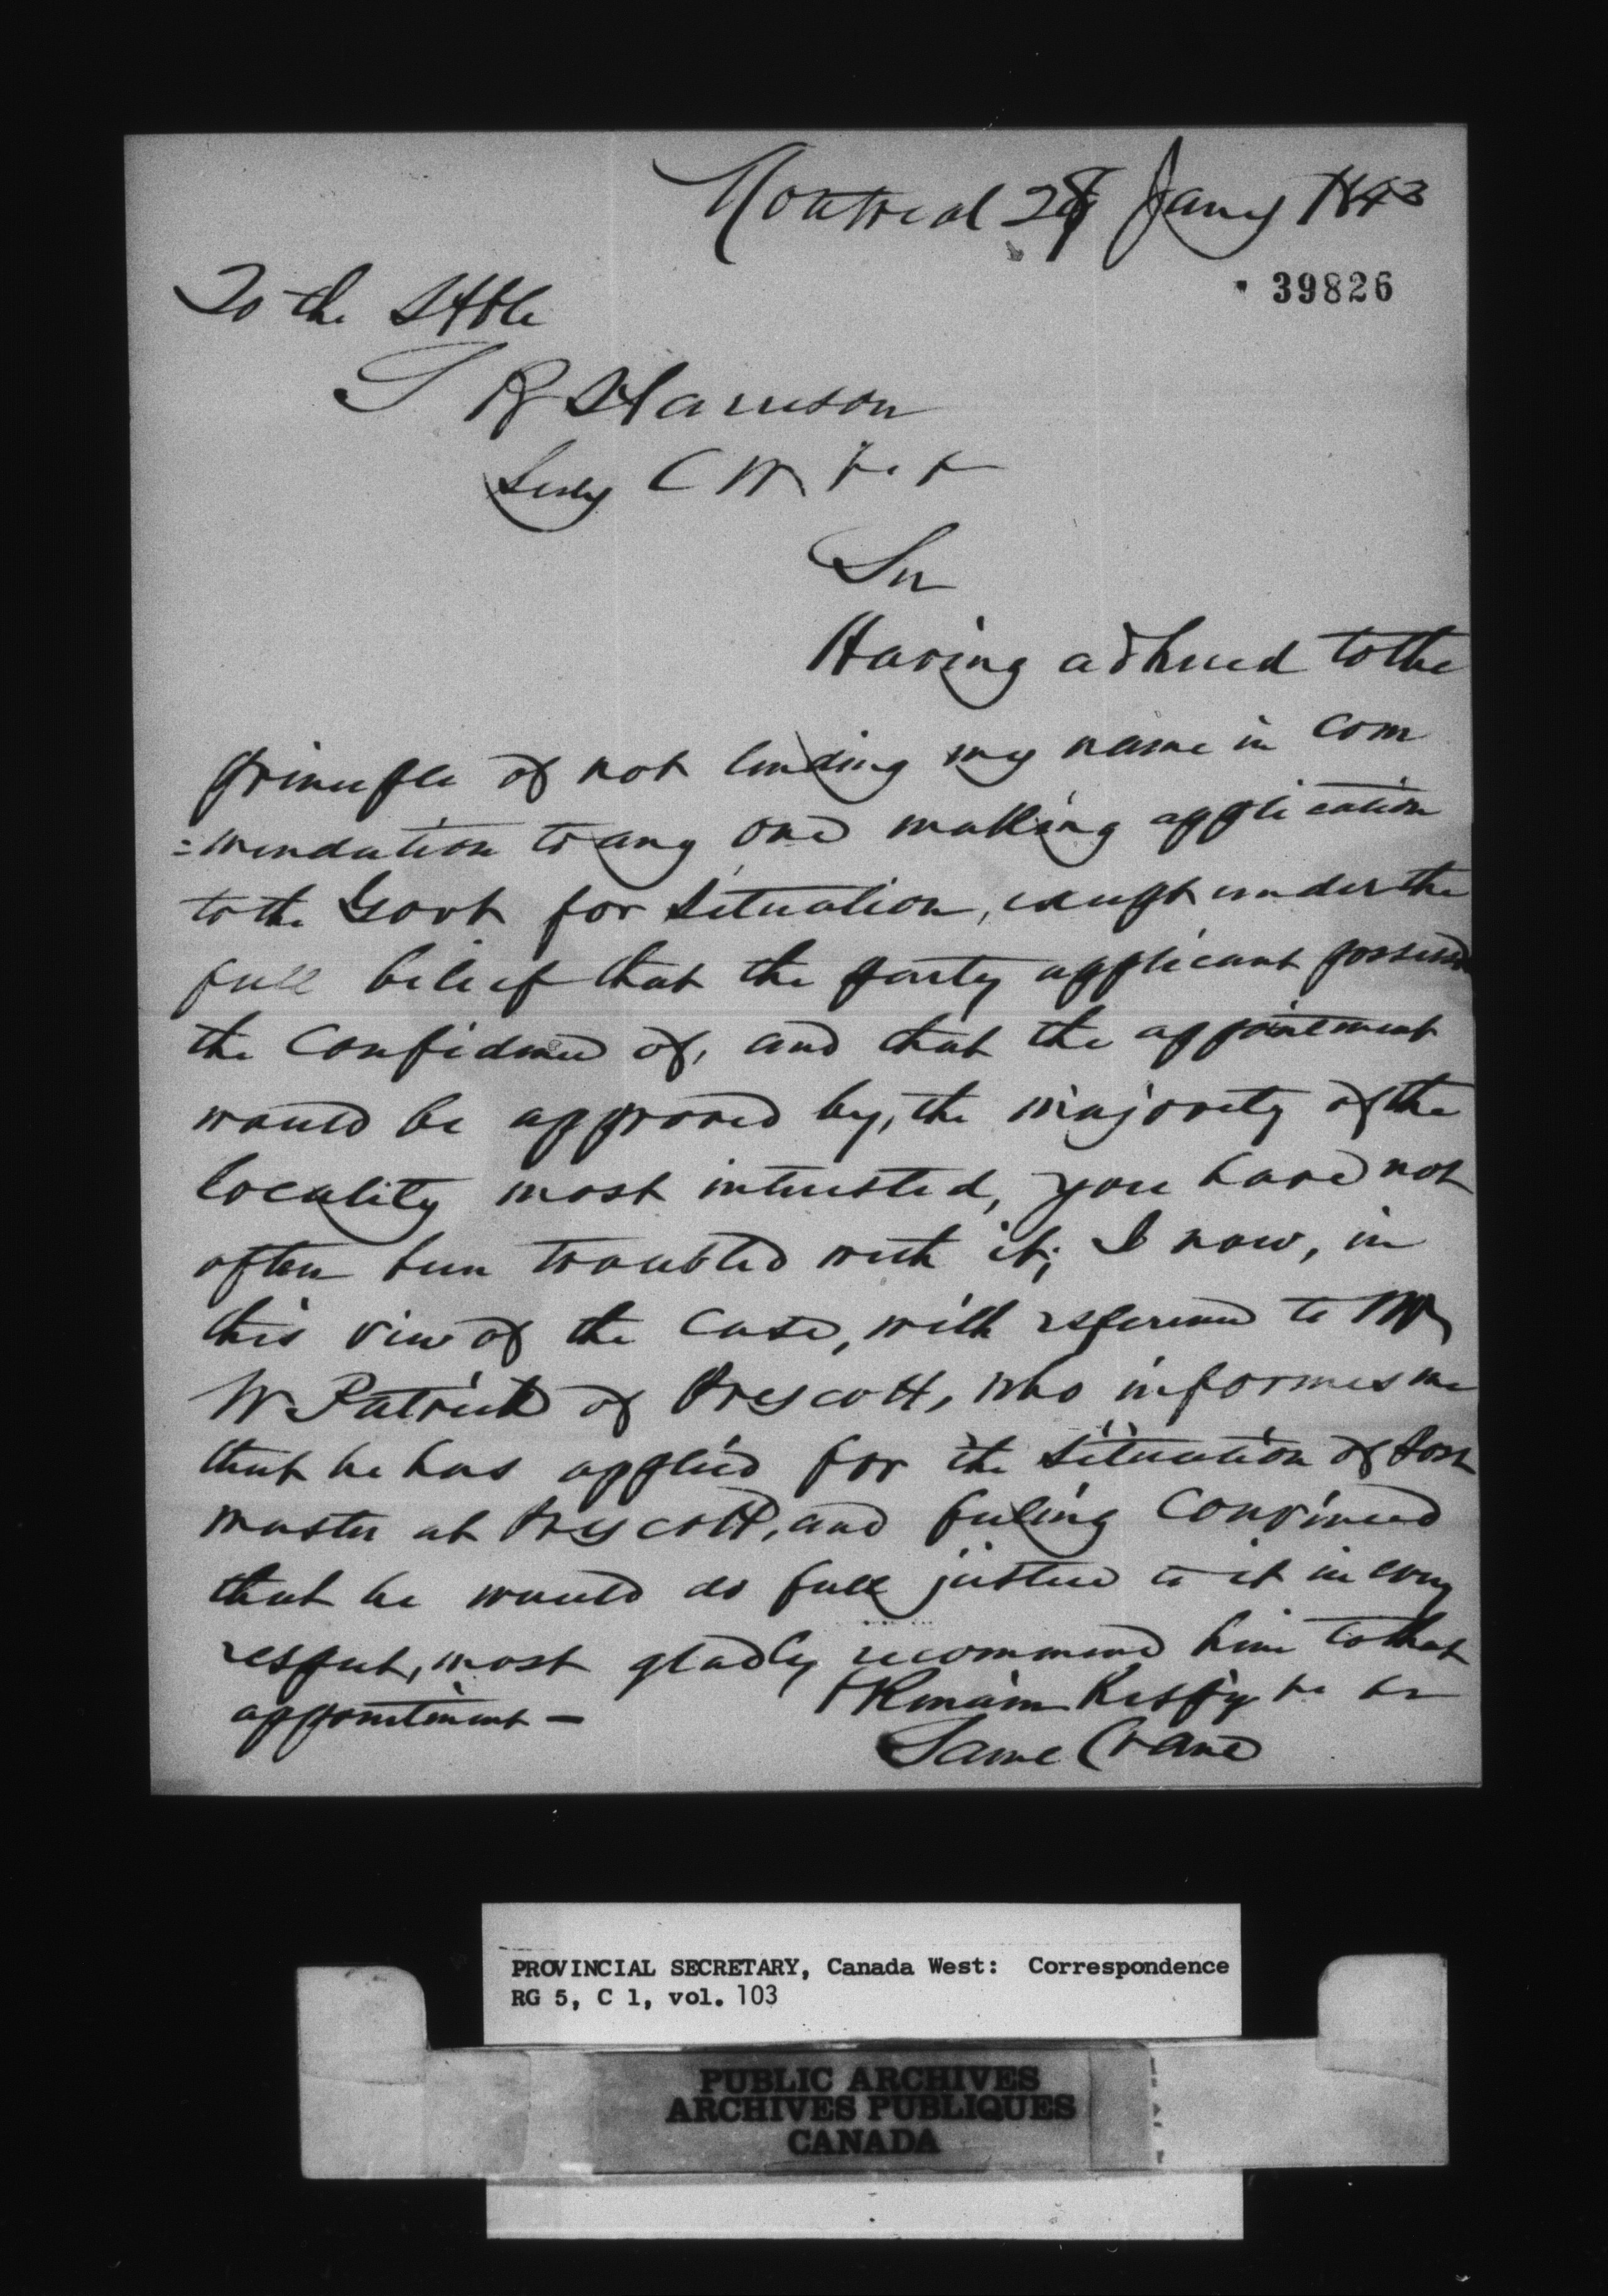 Montreal 28 Jany 1843
39826
To the Hble
S B Harrison
Secy C W &c &
Sir
Having adhered to the
principle of not lending my name in com
=mendation to any one making application
to the Govt for situation, except under the
full belief that the party applicant possessed
the confidence of, and that the appointment
would be approved by, the majority of the
locality most interested, you have not
often been troubled with it; I now, in
this view of the case, with reference to Mr
W Patrick of Prescott, who informes me
that he has applied for the situation of Post
master at Prescott, and feeling convinced
that he would do full justice to it in every
respect, most gladly recommend him to that
appointment —
I Remain Respfy &c &c
Saml Crane
PROVINCIAL SECRETARY, Canada West: Correspondence
RG 5, C 1, vol. 103
PUBLIC ARCHIVES
ARCHIVES PUBLIQUES
CANADA